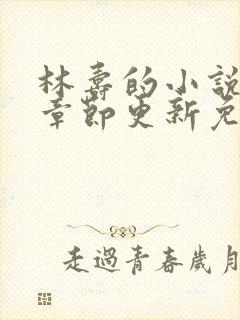 林壽的小說
章節更新免
走過青春歲月